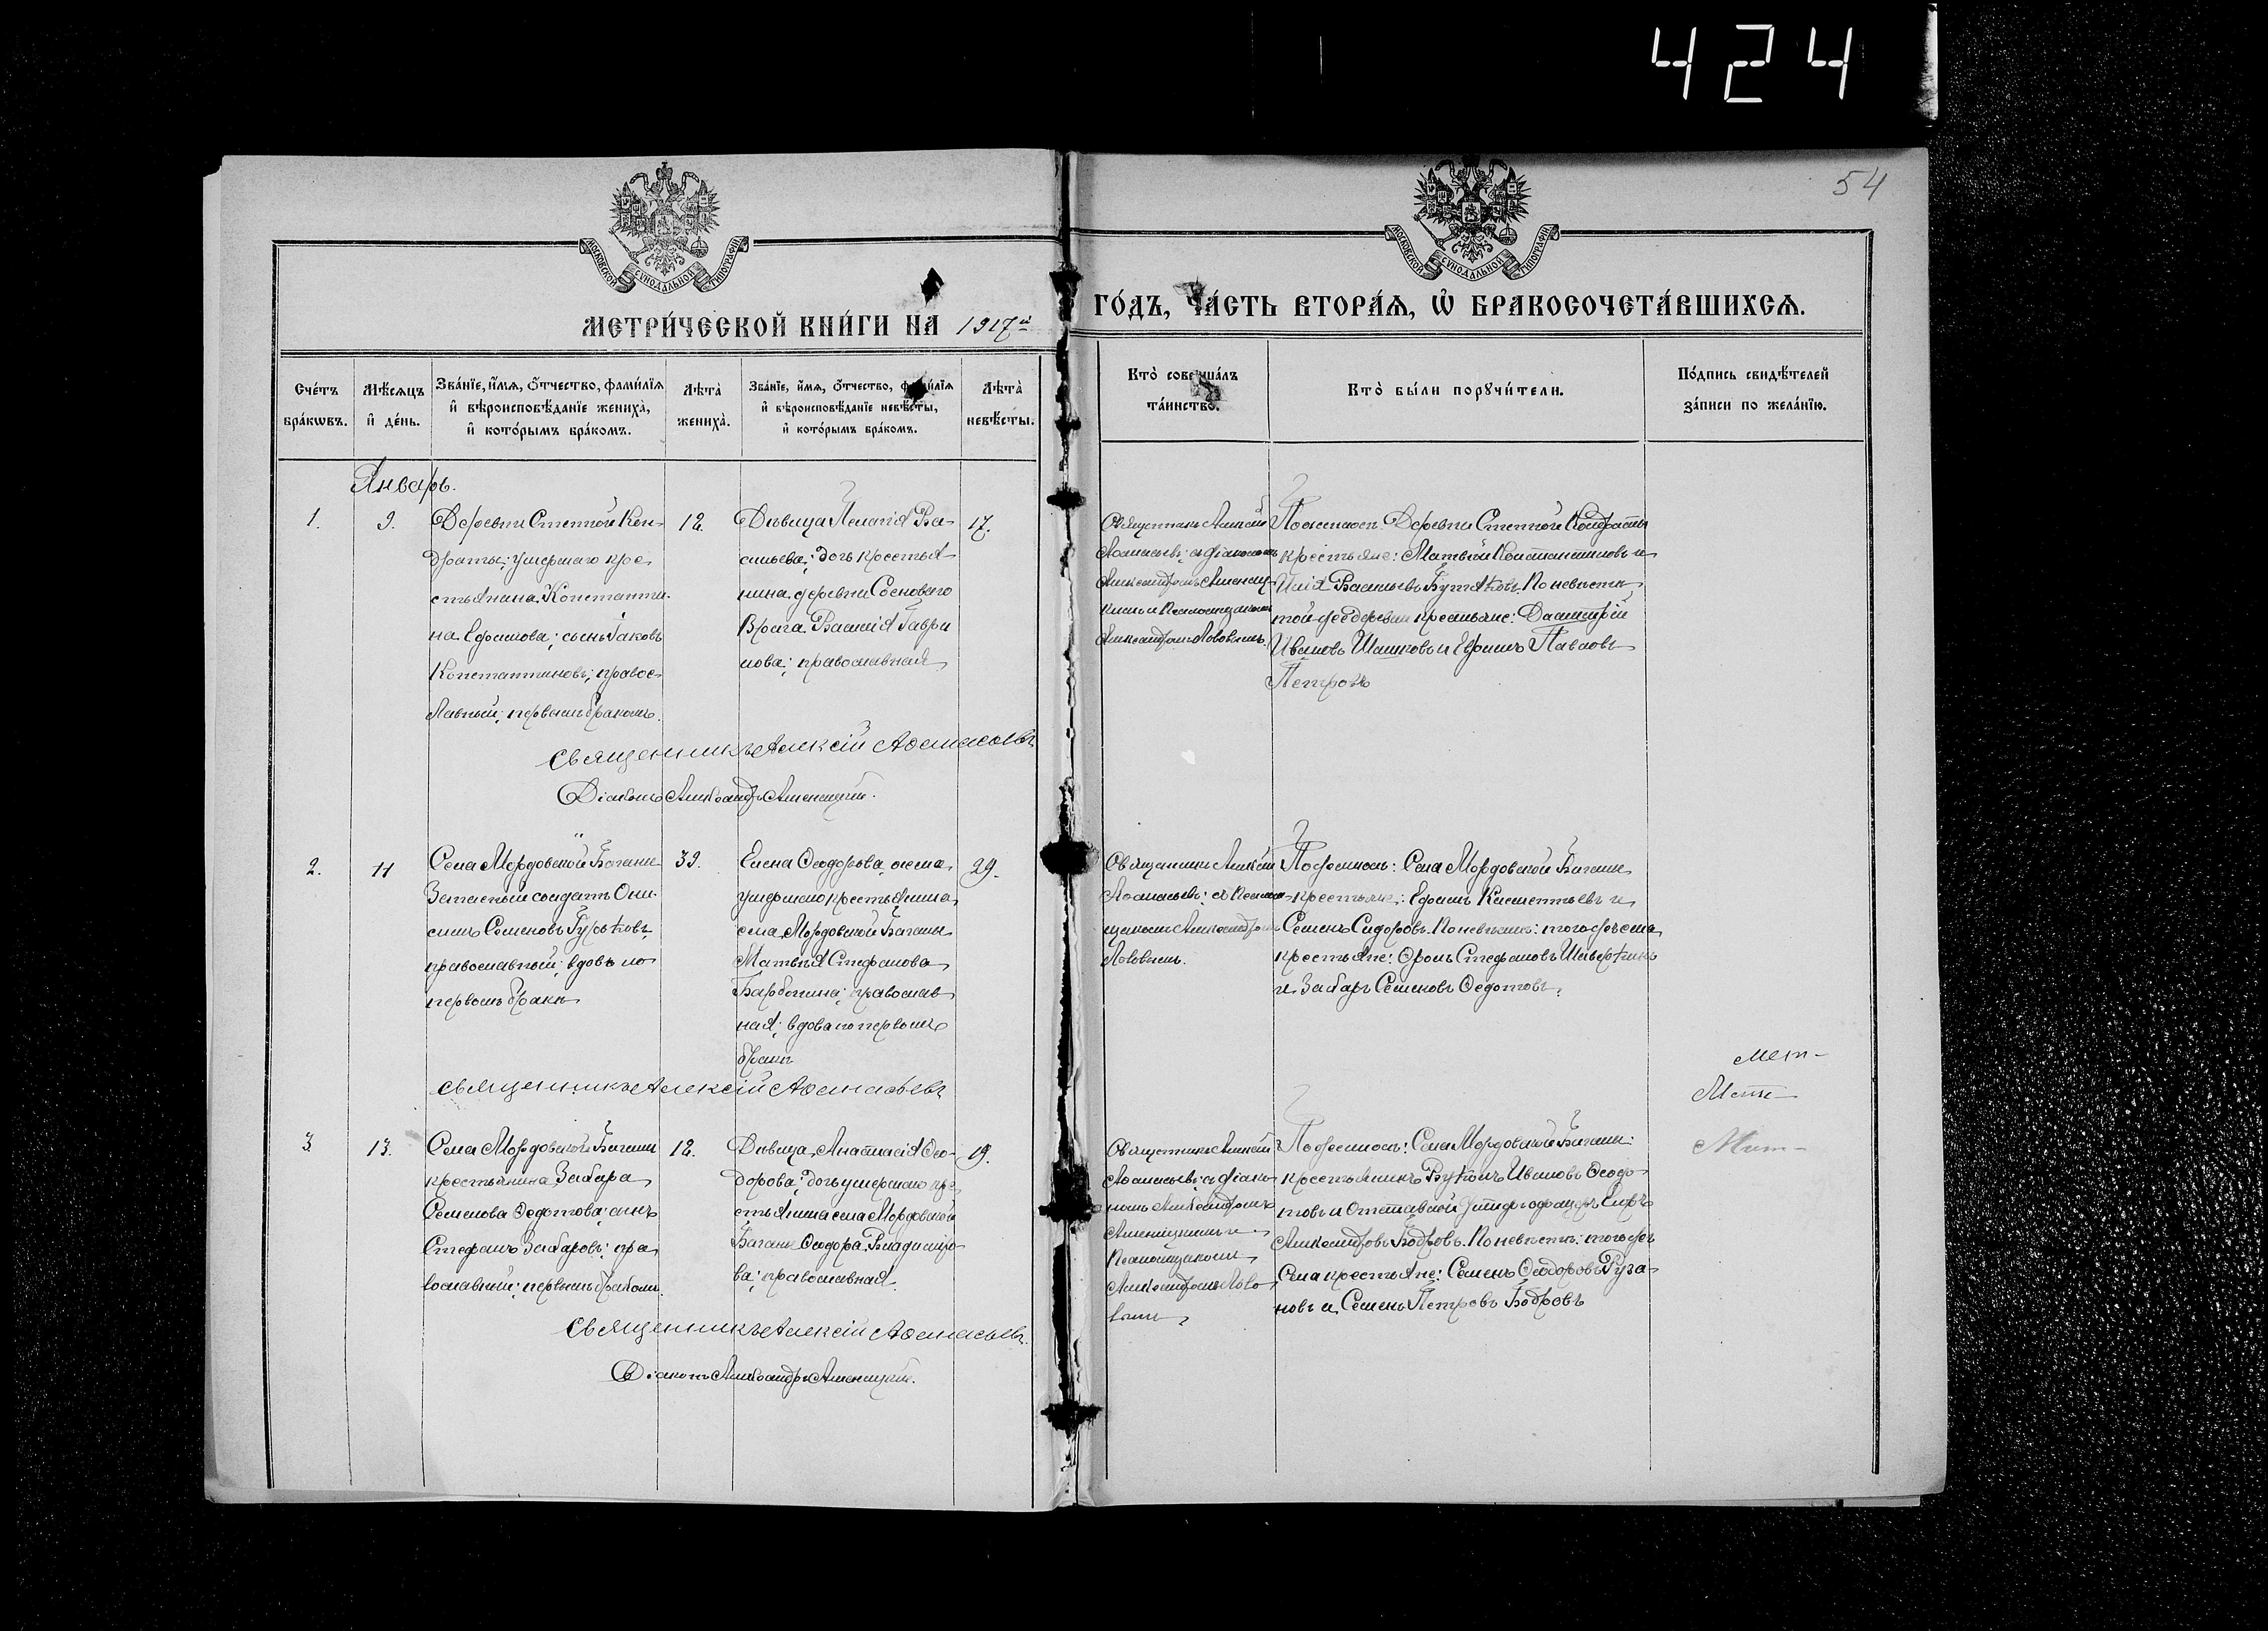 424
54
МОСКОВСКОЙ СѴНОДАЛЬНОЙ ТИПОГРАФІИ
МОСКОВСКОЙ СѴНОДАЛЬНОЙ ТИПОГРАФІИ
МЕТРИ́ЧЕСКОЙ КНИ́ГИ НА 1917й
ГО́ДЪ, ЧА́СТЬ ВТОРА́Ѧ, Ѡ҆ БРАКОСОЧЕТА́ВШИХСѦ.
Счéтъ
бра́кѡвъ.
Мѣ́сѧцъ
и҆ де́нь.
Зва́нїе, и҆́мѧ, ѻ҆́тчество, фами́лїѧ
и҆ вѣроисповѣ́данїе жениха̀,
и҆ кото́рымъ бра́комъ.
Лѣта̀
жениха̀.
Зва́нїе, и҆́мѧ, ѻ҆́тчество, фами́лїѧ
и҆ вѣроисповѣ́данїе невѣ́сты,
и҆ кото́рымъ бра́комъ.
Лѣта̀
невѣ́сты.
Кто̀ соверша́лъ
та́инство.
Кто̀ бы́ли порꙋчи́тели.
По́дпись свидѣ́телей
за́писи по жела́нїю.
Январь.
1.
9.
Деревни Степной Кон-
драты; умершаго кре-
стьянина Константи-
на Ефимова; сынъ Іаковъ
Константиновъ; правос-
лавный; первымъ бракомъ.
18.
Дѣвица Пелагія Ва-
сильева; дочь крестья-
нина деревни Сосноваго
Врага Василія Гаври
лова; православная
17.
Священникъ Алексій
Аѳанасьевъ; съ діакономъ
Александромъ
и псаломщикомъ
Александромъ
По женихѣ: Деревни Степной Кондраты
крестьяне: Матвѣй Константиновъ и
Илія Васильевъ Бутяковъ. По невѣстѣ
той же деревни крестьяне: Димитрій
Ивановъ Шашковъ и Ефимъ Павловъ
Петровъ
Священникъ Алексій Аѳанасьевъ
Діаконъ Александръ
2.
11
Села Мордовской Баганы
Запасный солдатъ Они-
симъ Семеновъ
православный; вдовъ по
первомъ бракѣ
39.
Елена Ѳеодорова, жена
умершаго крестьянина
села Мордовской Баганы
Матвѣя Стефанова
православ
ная; вдова по первомъ
бракѣ
29.
Священникъ Алексій
Аѳанасьевъ; съ псалом-
щикомъ Александромъ
По женихѣ: Села Мордовской Баганы
крестьяне: Ефимъ Климентьевъ и
Семенъ Сидоровъ. По невѣстѣ: того же села
крестьяне: Фролъ Стефановъ
и Захаръ Семеновъ Ѳедотовъ.
Священникъ Алексій Аѳанасьевъ
3
13.
Села Мордовской Баганы
крестьянина Захара
Семенова Ѳедотова; сынъ
Стефанъ Захаровъ; пра
вославный; первымъ бракомъ.
18.
Дѣвица Анастасія Ѳео-
дорова; дочь умершаго кре
стьянина села Мордовской
Баганы Ѳеодора Владиміро
ва; православная.
19.
Священникъ Алексій
Аѳанасьевъ; съ діако-
номъ Александромъ
и
псаломщикомъ
Александромъ
По женихѣ: Села Мордовской Баганы:
крестьянинъ Ивановъ Ѳедо-
товъ и отставной унтеръ офицеръ
Александровъ Бодровъ. По невѣстѣ: того же
села крестьяне: Семенъ Ѳеодоровъ Руза-
новъ и Семенъ Петровъ Бодровъ
Священникъ Алексій Аѳанасьевъ.
Діаконъ Александръ